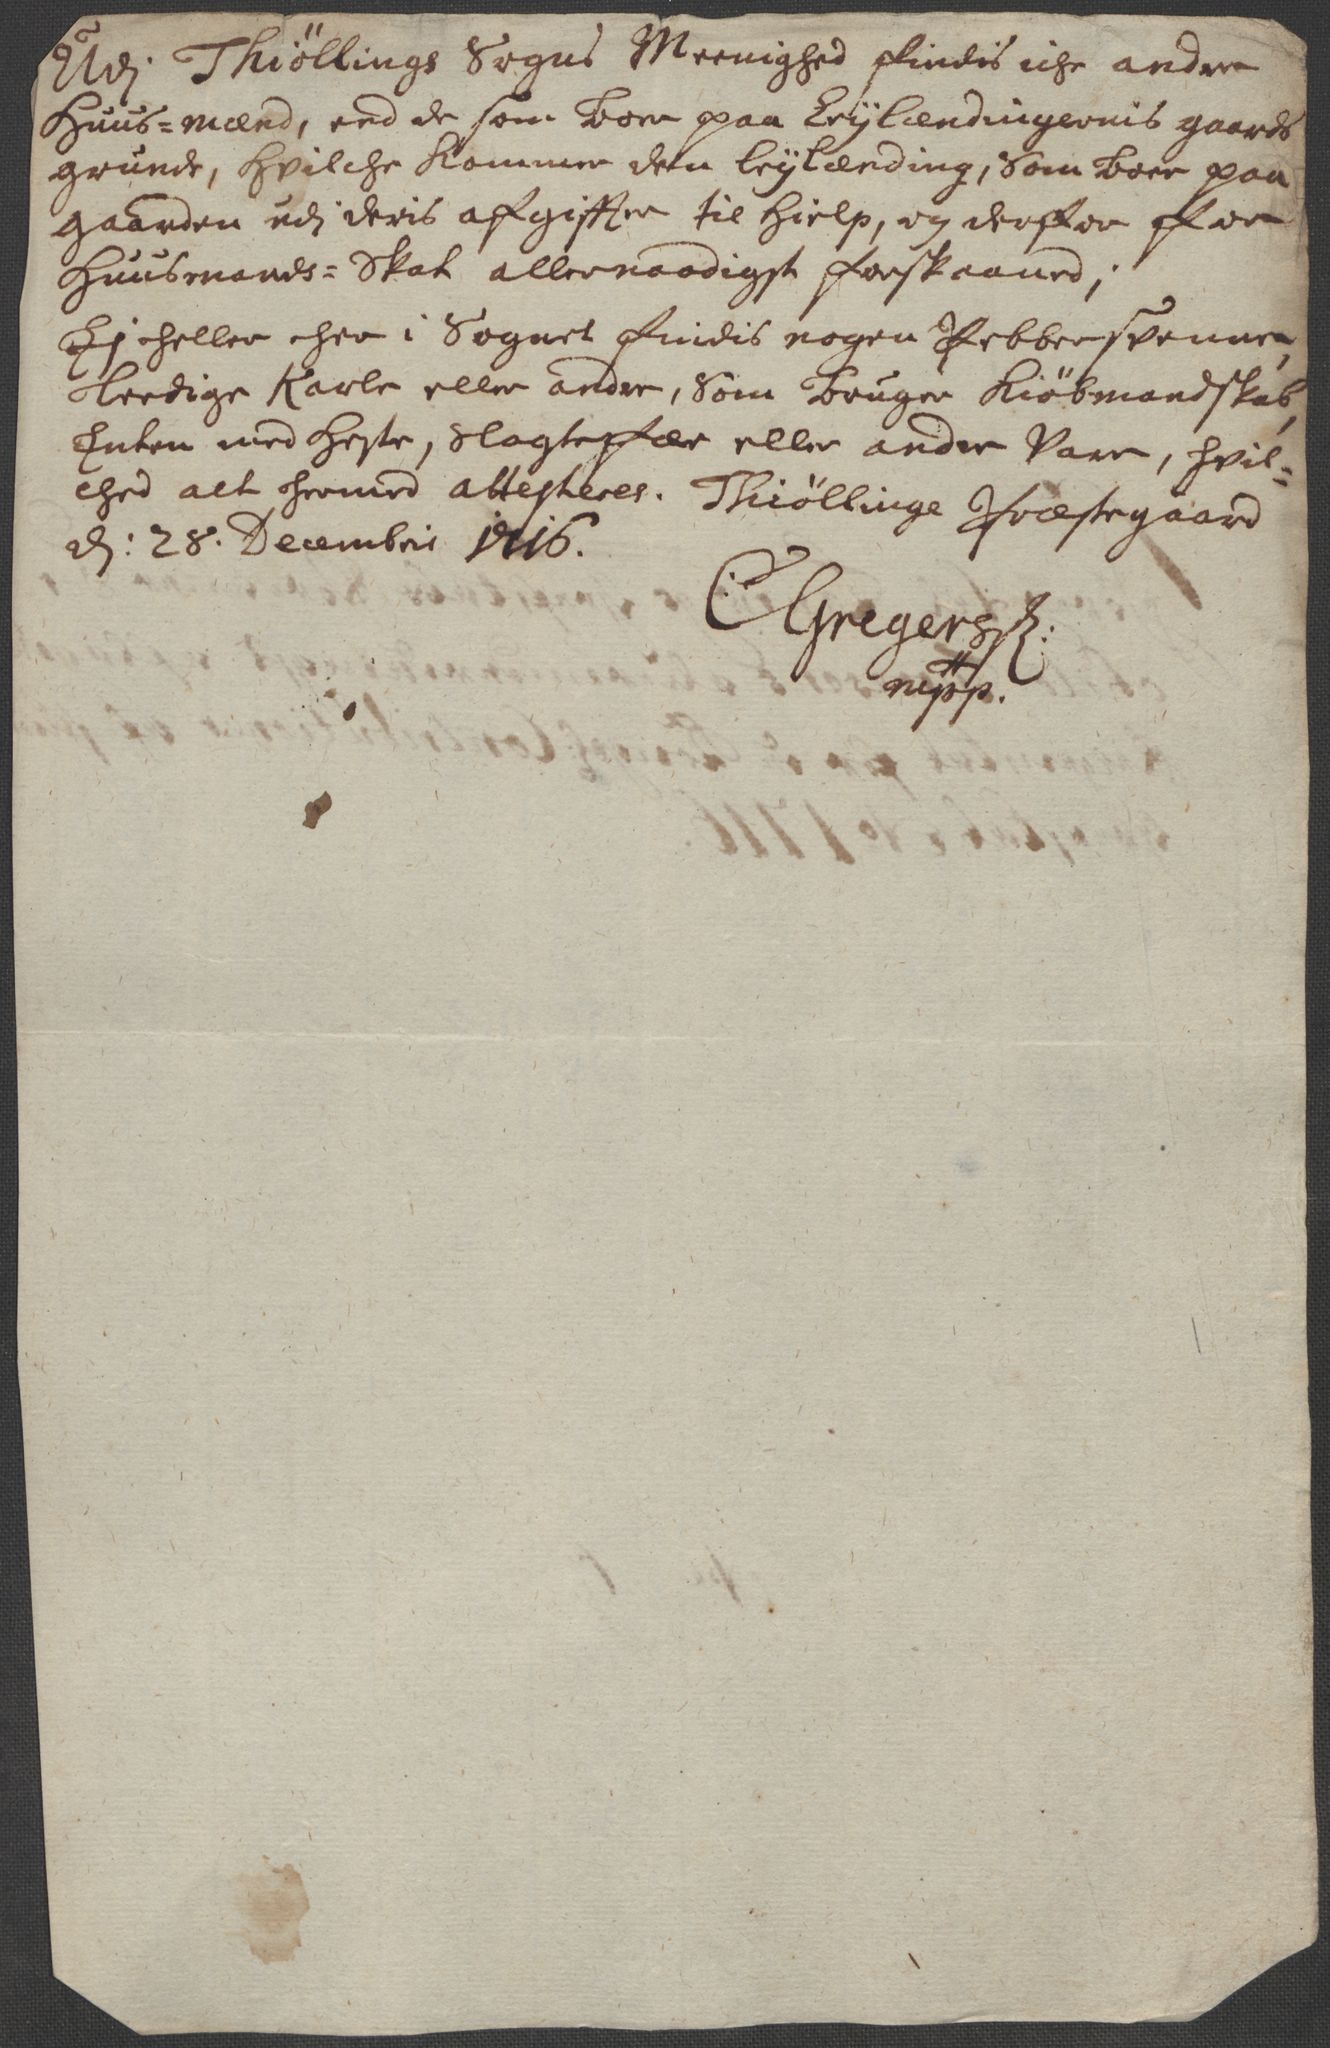 Udj Thiöllings Sogns Meenighed findis iche andre
Huus=mænd, end de som Boer paa Leÿlændingernis gaards
grunde, hvilche Kommer den leÿlænding, som Boer paa
gaarden udj deris afgiffter til Hielp, og derffor ffor
Huusmands=Skat allernaadigst forskaaned;
Ej heller her i Sognet findis nogen Pebbersvenne,
Leedige Karle eller andre, som Bruger Kiöbmandskab,
Enten med Heste, Slagtefæe eller andre Vare, hvil=
ched alt hermed attesteres. Thiöllinge Præstegaard
d: 28. Decembris 1716.
C Gregers
mpp.